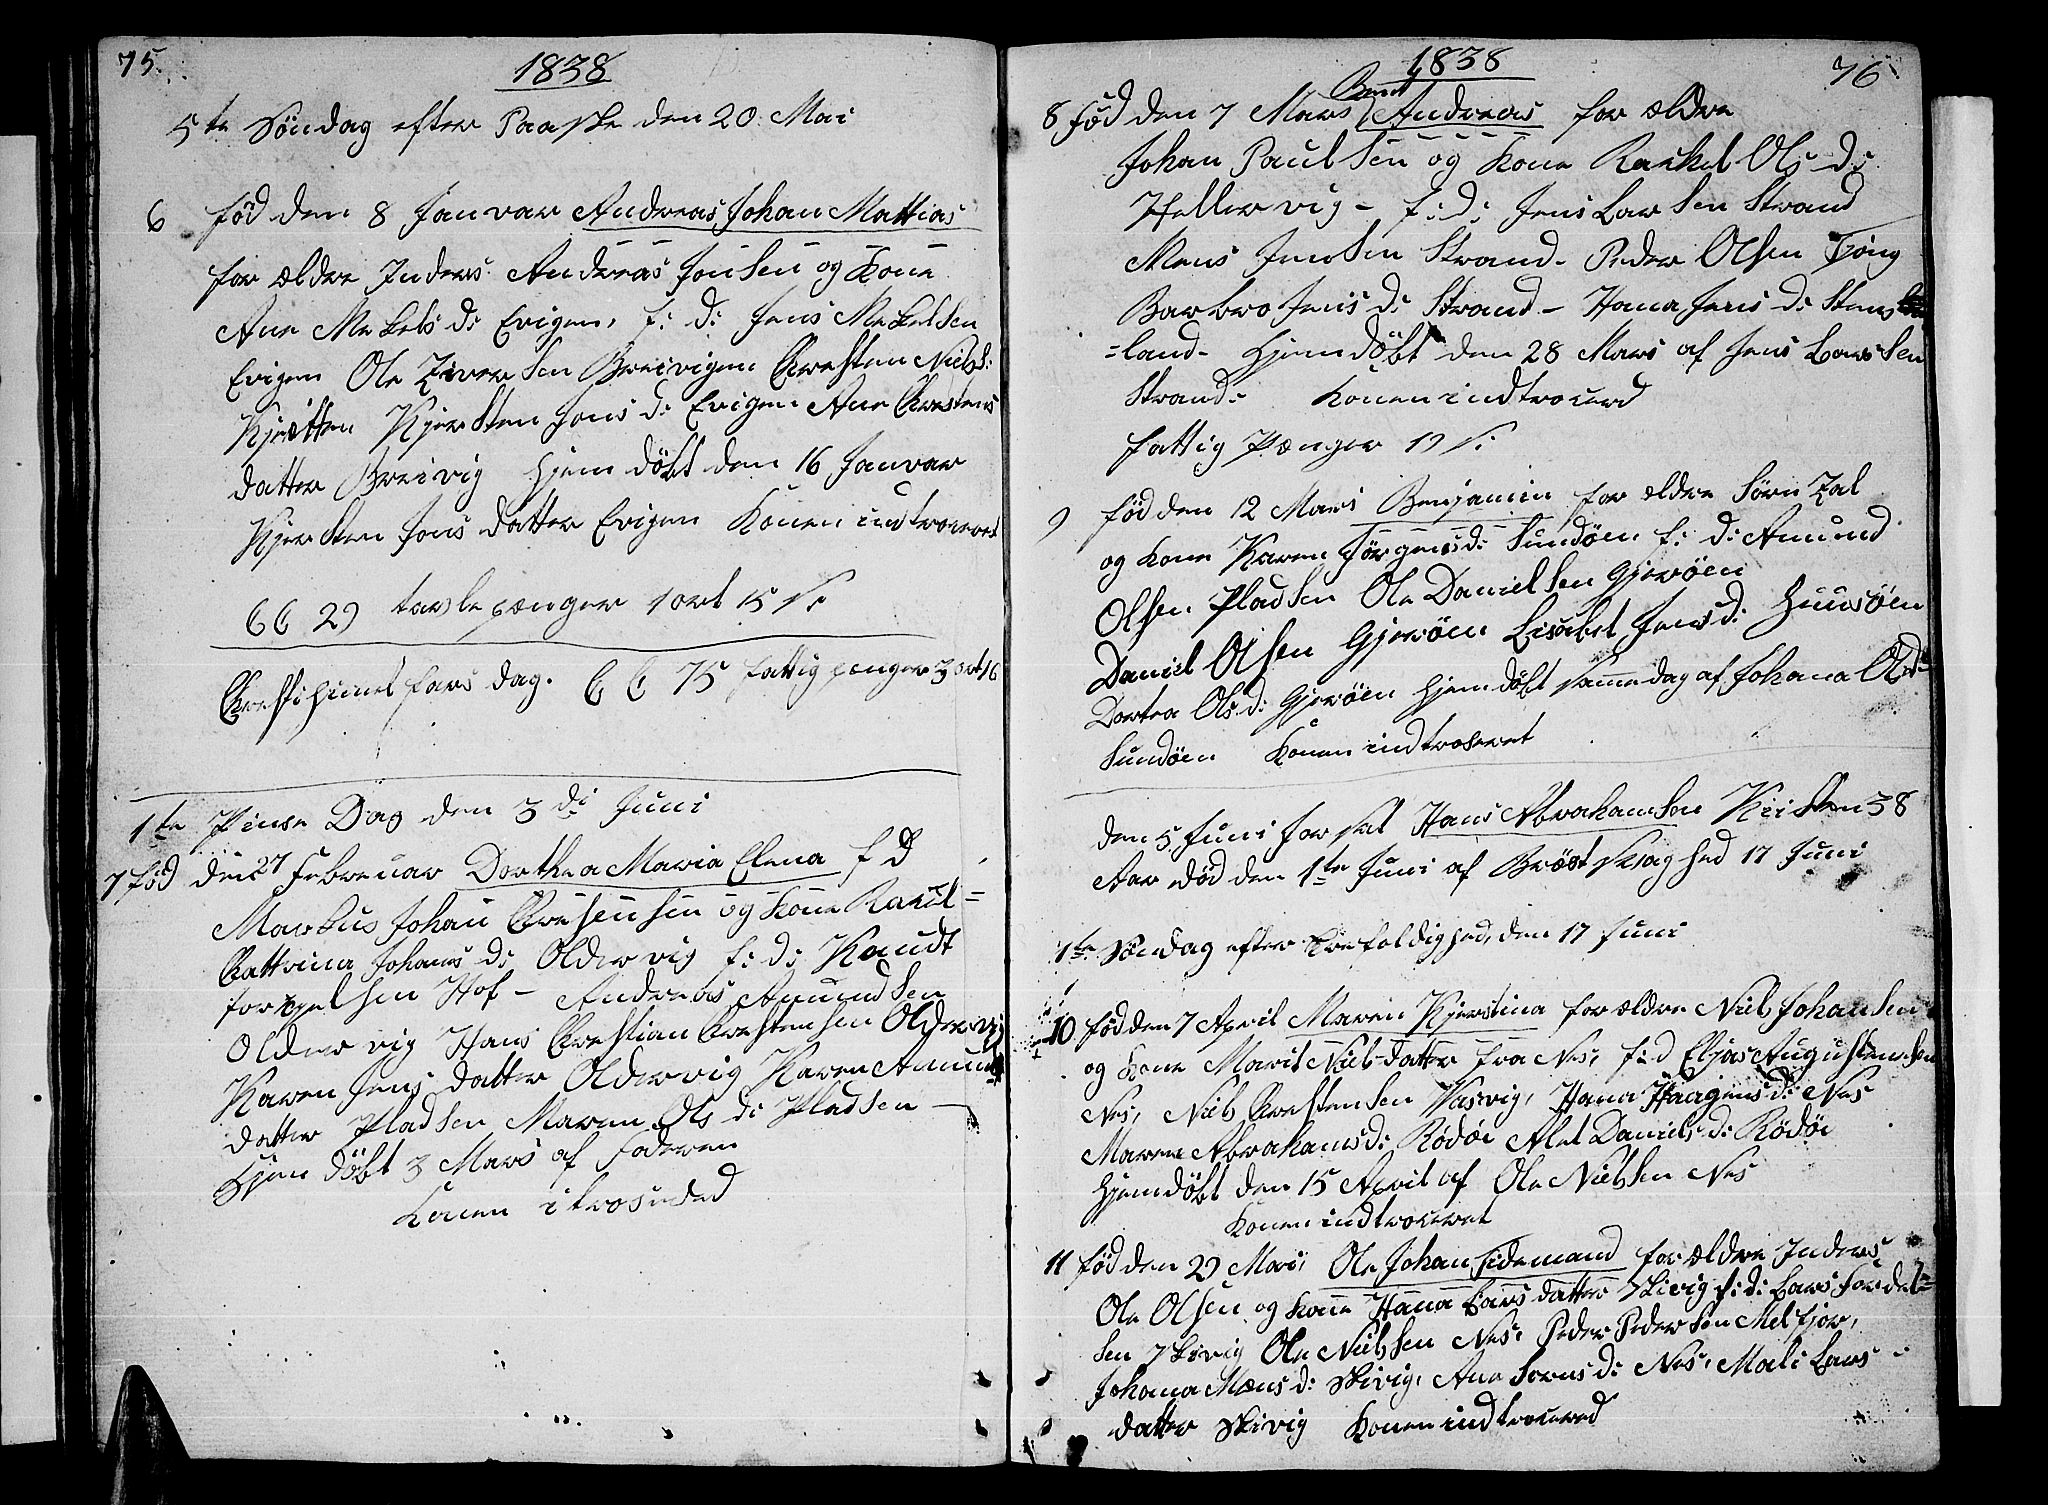 75.
1838
5te Söndag efter Paaske den 20 Mai
6 föd den 8 Januar Andreas Johan Mattias
for ældre Inders Andreas Jonsen og Kone
Ane Mekels d: Evigen, f: d: Jens Mekelsen
Evigen Ole Iversen Breivigen Chresten Niels:
Kjersten Jons d: Evigen Ane Chrestens
datter Breivig Hjemdöbt den 16 Januar
Kjersten Jons datter Evigen Konen introseret
C C 29 tavlepænger 1 ort 15 s:
Christi himelfars dag. C C 75 fattigpænger 3 ort 16
1te Pinse Dag den 3di Juni
7 föd den 27 Februar Dorthea Maria Elena f d
Markus Johan Chrisensen og Kone
Cattrina Johans d: Oldervig f: d: Knudt
Hof - Andreas Amundsen
Oldervig Hans Christian Chrestensen Oldervig
Karen Jens datter Oldervig Karen Amund
datter Pladsen Maren Ols d: Pladsen
Hjemdöbt 3 Mars af Faderen
Konen itroseded
1838
76
8 föd den 7 Mars Bernt Andreas for ældre
Johan Paulsen og Kone Rackel Ols d:
Hellervig - f: d: Jens Larsen Strand
Mens Jensen Strand - Peder Olsen Tjong
Barbro Jens d: Strand - Hana Jens d: Stens
=land - Hjemdöbt den 28 Mars af Jens Larsen
Strand: Konen indtrocerd
fattig Pænger 19 s:
9 föd den 12 Mars Benjamin for ældre Sörn Zal
og Kone Karen Jörgens d: Sundöen f: d: Amund
Olsen Pladsen Ole Danielsen Gjeröen
Daniel Olsen Gjeröen Lisabet Jens d: Huusöen
Dortea Ols d: Gjeröen Hjemdöbt samme dag af Johana Ols d:
Sundöen Konen indtroseret
den 5 Juni Hans Abrahamsen 38
Aar död den 1te Juni af Bröstsvaghed 17 Juni
1te Söndag efter Trefoldighed, den 17 Juni
10 föd den 7 April Maren Kjerstina for ældre Niels Johansen
og Kone Marit Niels datter fra Nes, f: d Eljas Augustensen
Nes, Niels Chrestensen Vasvig, Hana Haagens d: Nes
Maren Abrahams d: Rödöe Alet Daniels d: Rödöe
Hjemdöbt den 15 April af Ole Nielsen Nes
Konen indtroceret
11 föd den 29 Mai, Ole Johan Tidemand for ældre Inders
Ole Olsen og Kone Hana Lars datter Skivig f: d: Lars
sen Skivig Ole Nielsen Nes, Peder Pedersen Melfjor,
Johana Mons d: Skivig, Ane Sorns d: Nes, Mali Lars
datter Skivig Konen indtrocered